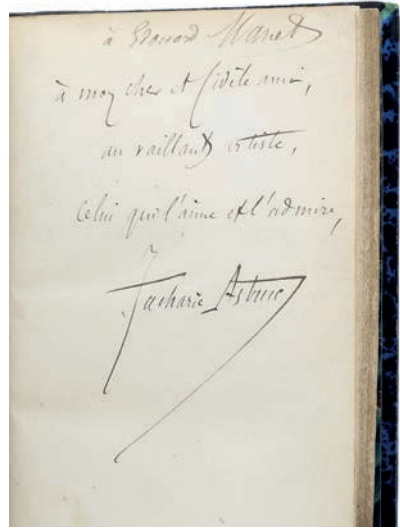 à Edouard Manet
à mon cher et fidèle ami,
au vaillant artiste,
Celui qui l'aime et l'admire,
Zacharie Astruc